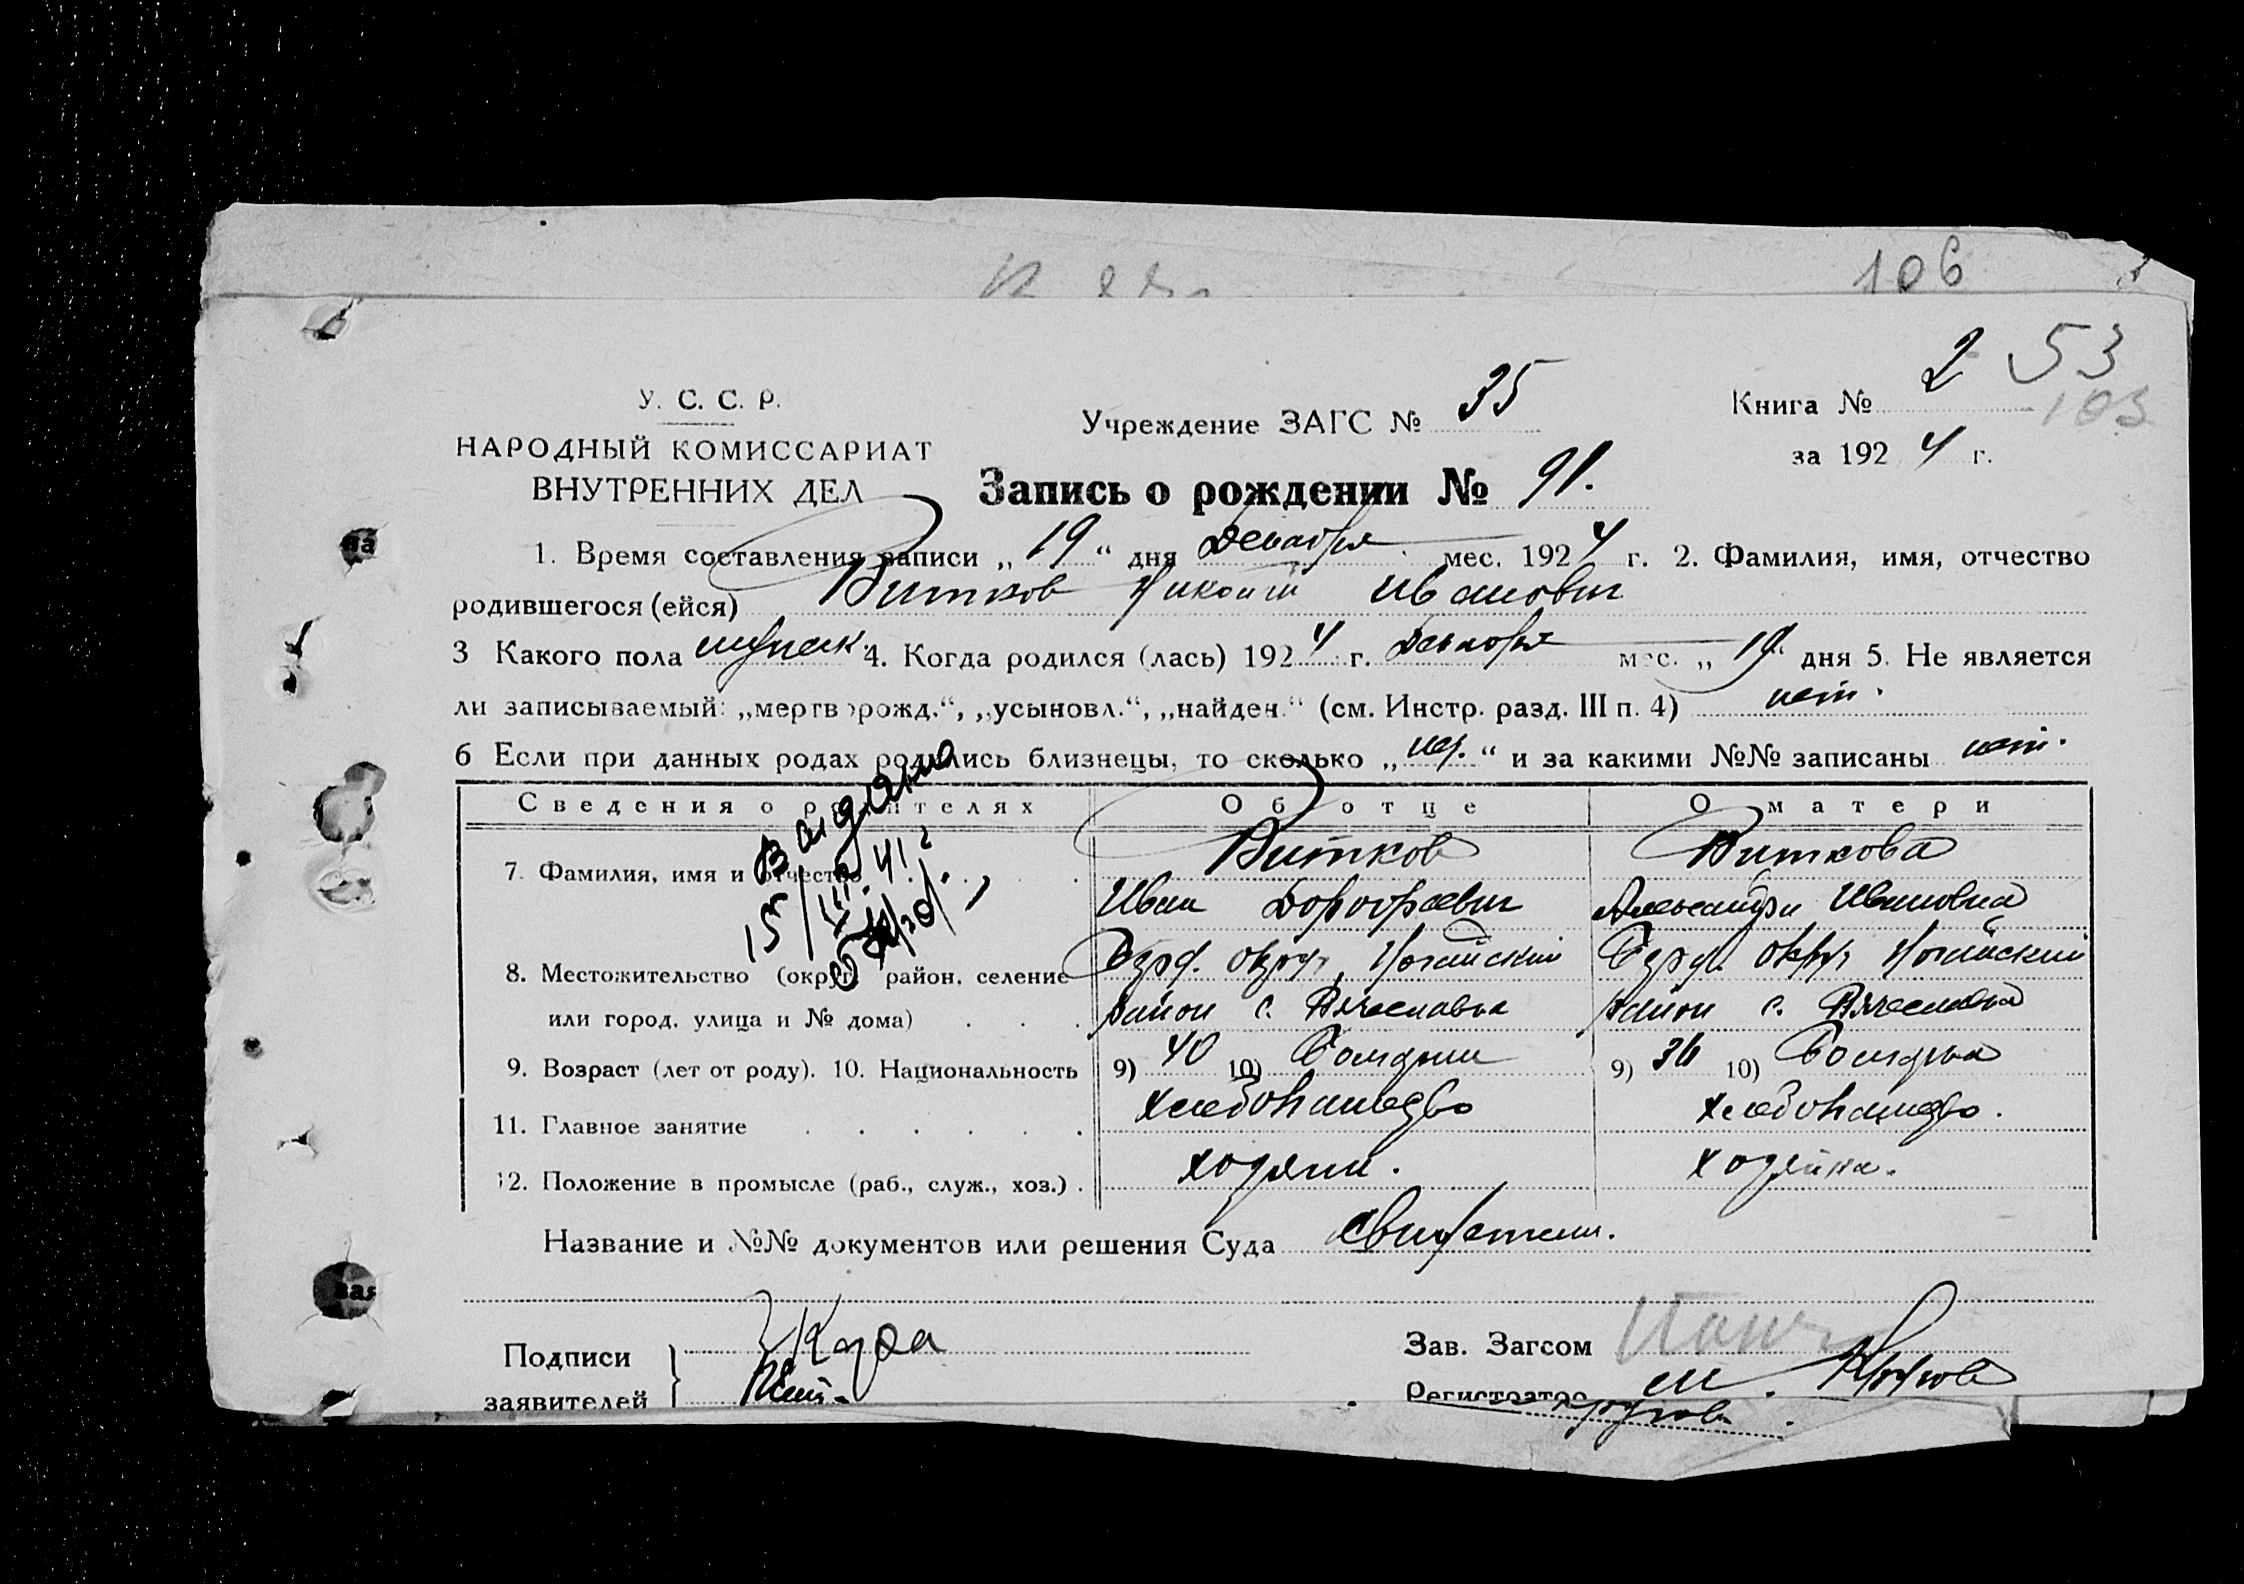 106
53
У. С. С. Р.
Учреждение ЗАГС № 35
Книга № 2
103
НАРОДНЫЙ КОМИССАРИАТ
за 1924 г.
ВНУТРЕННИХ ДЕЛ
Запись о рождении № 91.
1. Время составления записи „ 19 “ дня Декабря мес. 1924 г. 2. Фамилия, имя, отчество
родившегося (ейся) Витков Иванович
3 Какого пола мужск. 4. Когда родился (лась) 1924 г. Декабря мес. „ 19 “ дня 5. Не является
ли записываемый: „мертворожд.“, „усыновл.“, „найден.“ (см. Инстр. разд. III п. 4) нет.
6 Если при данных родах родились близнецы, то сколько „ нет. “ и за какими №№ записаны нет.
Сведения о родителях Об отце О матери
7. Фамилия, имя и отчество Витков Виткова
Иван Дорофеевич Александра Ивановна
8. Местожительство (округ, район, селение Берд. округ, Ногайский Бердян. округ Ногайский
или город, улица и № дома) район с. Вячеславка район с. Вячеславка
9. Возраст (лет от роду). 10. Национальность 9) 40 10) Болгарин 9) 36 10) Болгарка
11. Главное занятие хлебопашество хлебопашество.
12. Положение в промысле (раб., служ., хоз.) хозяин. хозяйка.
Выдано
15/III. 41 г
Название и №№ документов или решения Суда свидетели.
Подписи
заявителей
Зав. Загсом
Регистратор